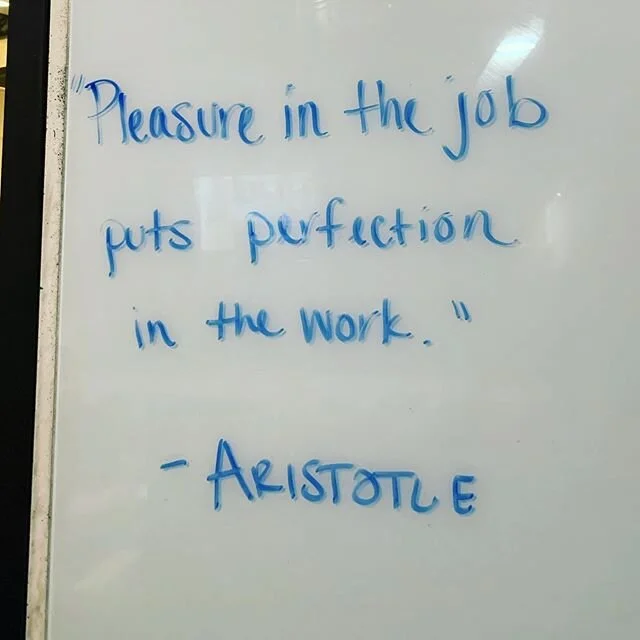 "Pleasure in the job
puts perfection
in the work."
- ARISTOTLE